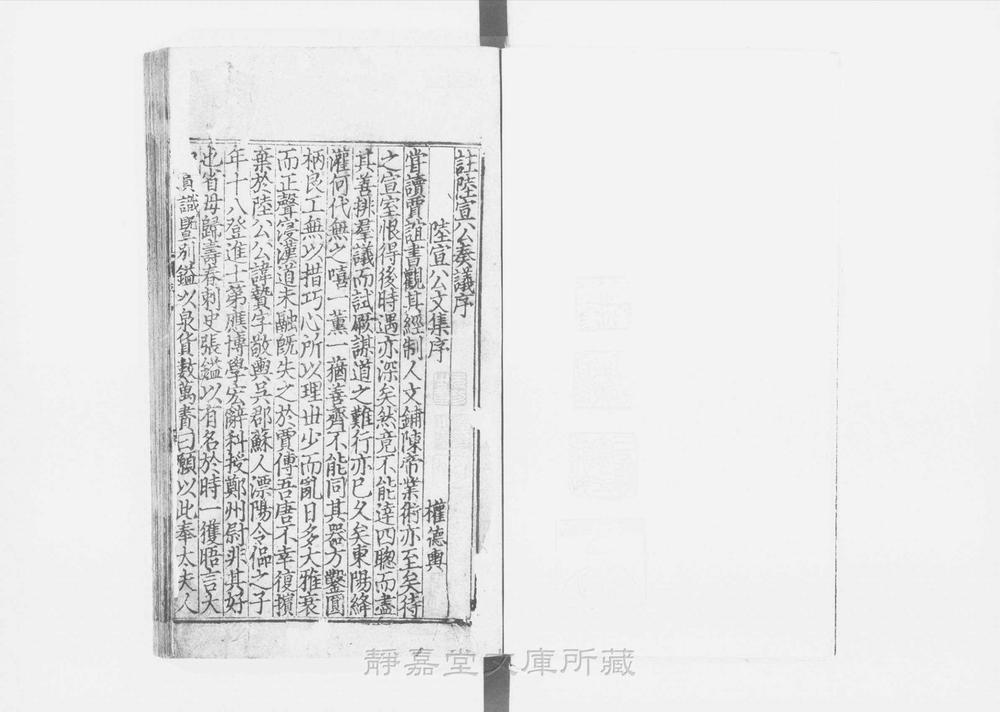 註陸宣公奏議序
陸宣公文集序
權德輿
嘗讀賈誼書觀其經制人文鋪陳帝業術亦至矣待
之宣室恨得後時遇亦深矣然竟不能達四聦而盡
其善排羣議而試厥謀道之難行亦已久矣東陽絳
灌何代無之嘻一薰一蕕善齊不能同其器方鑿圓
枘良工無以措巧心所以理丗少而亂日多大雅衰
而正聲寖漢道未融旣失之於賈傅吾唐不幸復擯
棄於陸公公諱贄字敬輿吳郡蘇人溧陽令偘之子
年十八登進士第應博學宏辭科授鄭州尉非其好
也省母歸壽春刺史張鎰以有名於時一獲晤言大
識曁別鎰以泉貨數萬賮曰願以此奉太夫人
靜嘉堂文庫所藏